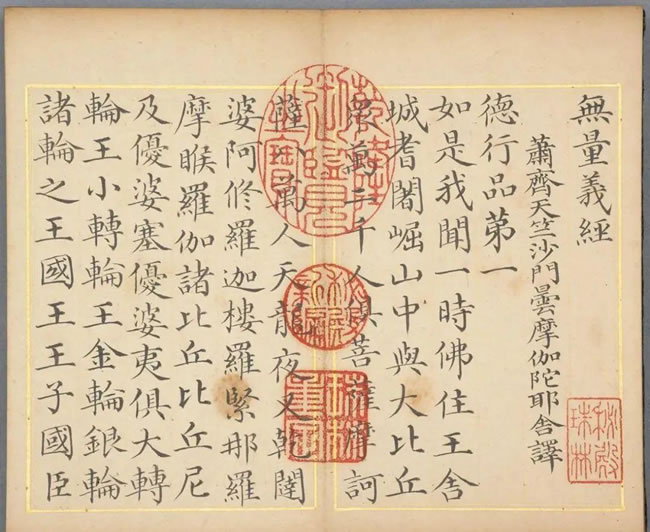 無量義經
蕭齊天竺沙門曇摩伽陀耶舍譯
德行品第一
如是我聞一時佛住王舍
城耆闍崛山中與大比丘
衆萬二千人俱菩薩摩訶
薩八萬人天龍夜叉乾闥
婆阿修羅迦樓羅緊那羅
摩睺羅伽諸比丘比丘尼
及優婆塞優婆夷俱大轉
輪王小轉輪王金輪銀輪
諸輪之王國王王子國臣
秘殿珠林
珠林重定